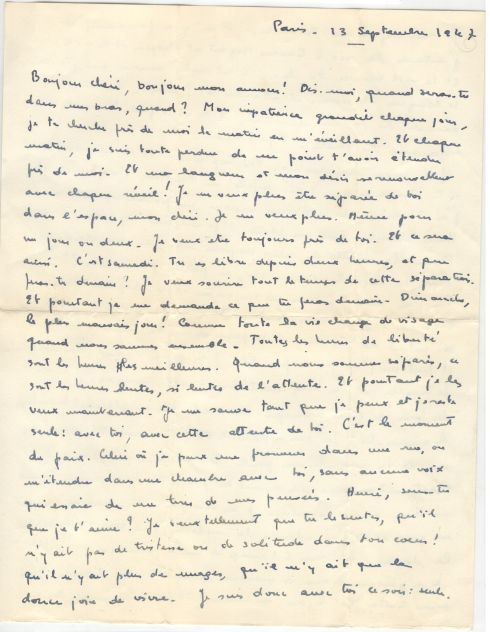 Paris - 13 Septembre 1947
Bonjour chéri, bonjour mon amour! Dis-moi, quand seras-tu
dans mes bras, quand? Mon impatience grandit chaque jour,
je te cherche près de moi le matin en m'éveillant. Et chaque
matin, je suis toute perdue de ne point t'avoir étendu
près de moi. Et ma langueur et mon désir se renouvellent
avec chaque réveil! Je ne veux plus être séparée de toi
dans l'espace, mon chéri. Je ne veux plus. Même pour
un jour ou deux. Je veux être toujours près de toi. Et ce sera
ainsi. C'est samedi. Tu es libre depuis deux heures, et que
feras-tu demain? Je veux sourire tout le temps de cette séparation.
Et pourtant je me demande ce que tu feras demain. Dimanche,
le plus mauvais jour! Comme toute la vie change de visage
quand nous sommes ensemble. Toutes les heures de liberté
sont les heures les meilleures. Quand nous sommes séparés, ce
sont les heures lentes, si lentes de l'attente. Et pourtant je les
veux maintenant. Je me sauve tant que je peux et je reste
seule: avec toi, avec cette attente de toi. C'est le moment
de paix. Celui où je peux me promener dans une rue, ou
m'étendre dans une chambre avec toi, sans aucune voix
qui essaie de me tirer de mes pensées. Henri, sens-tu
que je t'aime? Je veux tellement que tu le sentes, qu'il
n'y ait pas de tristesse ou de solitude dans ton coeur!
qu'il n'y ait plus de nuages, qu'il n'y ait que la
douce joie de vivre. Je suis donc avec toi ce soir: seule.